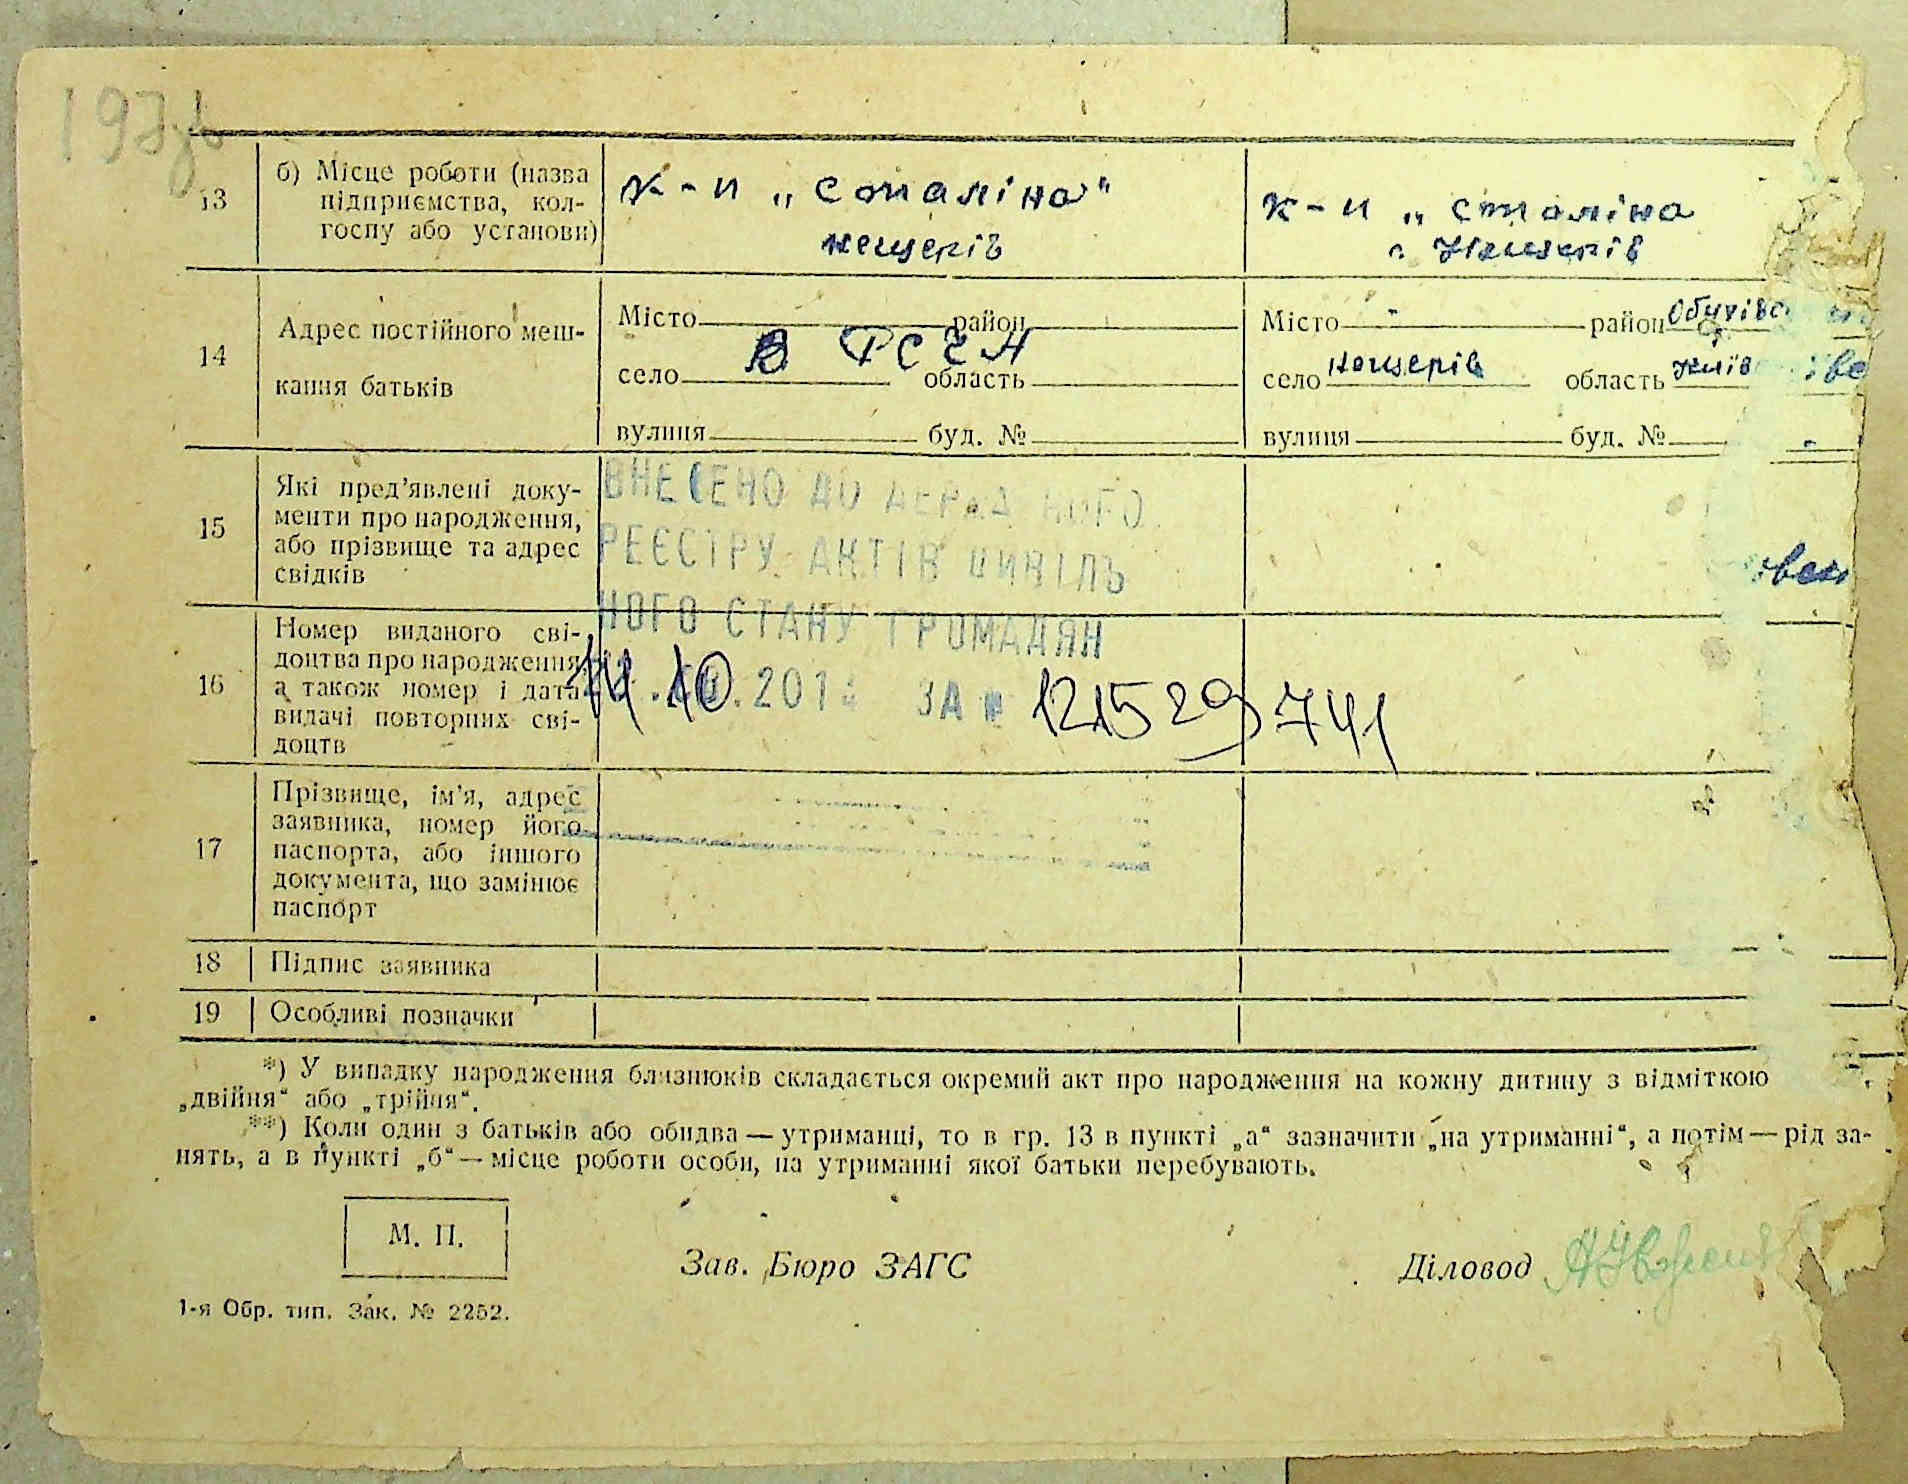 13
б) Місце роботи (назва
підприємства, кол-
госпу або установи)
к-п „Сталіна"
Нещерів
к-п „Сталіна
с. Нещерів
14
Адрес постійного меш-
кання батьків
Місто район
В РСЧА
село область
вулиця буд. №
Місто - район Обухівс
село Нещерів область Київ
вулиця буд. №
15
Які пред'явлені доку-
менти про народження,
або прізвище та адрес
свідків
ВНЕСЕНО ДО ДЕРЖАВНОГО
РЕЄСТРУ АКТІВ ЦИВІЛЬ
НОГО СТАНУ ГРОМАДЯН
14.10.201 ЗА № 121529741
16
Номер виданого сві-
доцтва про народження,
а також номер і дата
видачі повторних сві-
доцтв
17
Прізвище, ім'я, адрес
заявника, номер його
паспорта, або іншого
документа, що замінює
паспорт
18 Підпис заявника
19 Особливі позначки
*) У випадку народження близнюків складається окремий акт про народження на кожну дитину з відміткою
„двійня“ або „трійня“.
**) Коли один з батьків або обидва — утриманці, то в гр. 13 в пункті „а“ зазначити „на утриманні“, а потім — рід за-
нять, а в пункті „б“ — місце роботи особи, на утриманні якої батьки перебувають.
М. П.
Зав. Бюро ЗАГС
Діловод
1-я Обр. тип. Зак. № 2252.